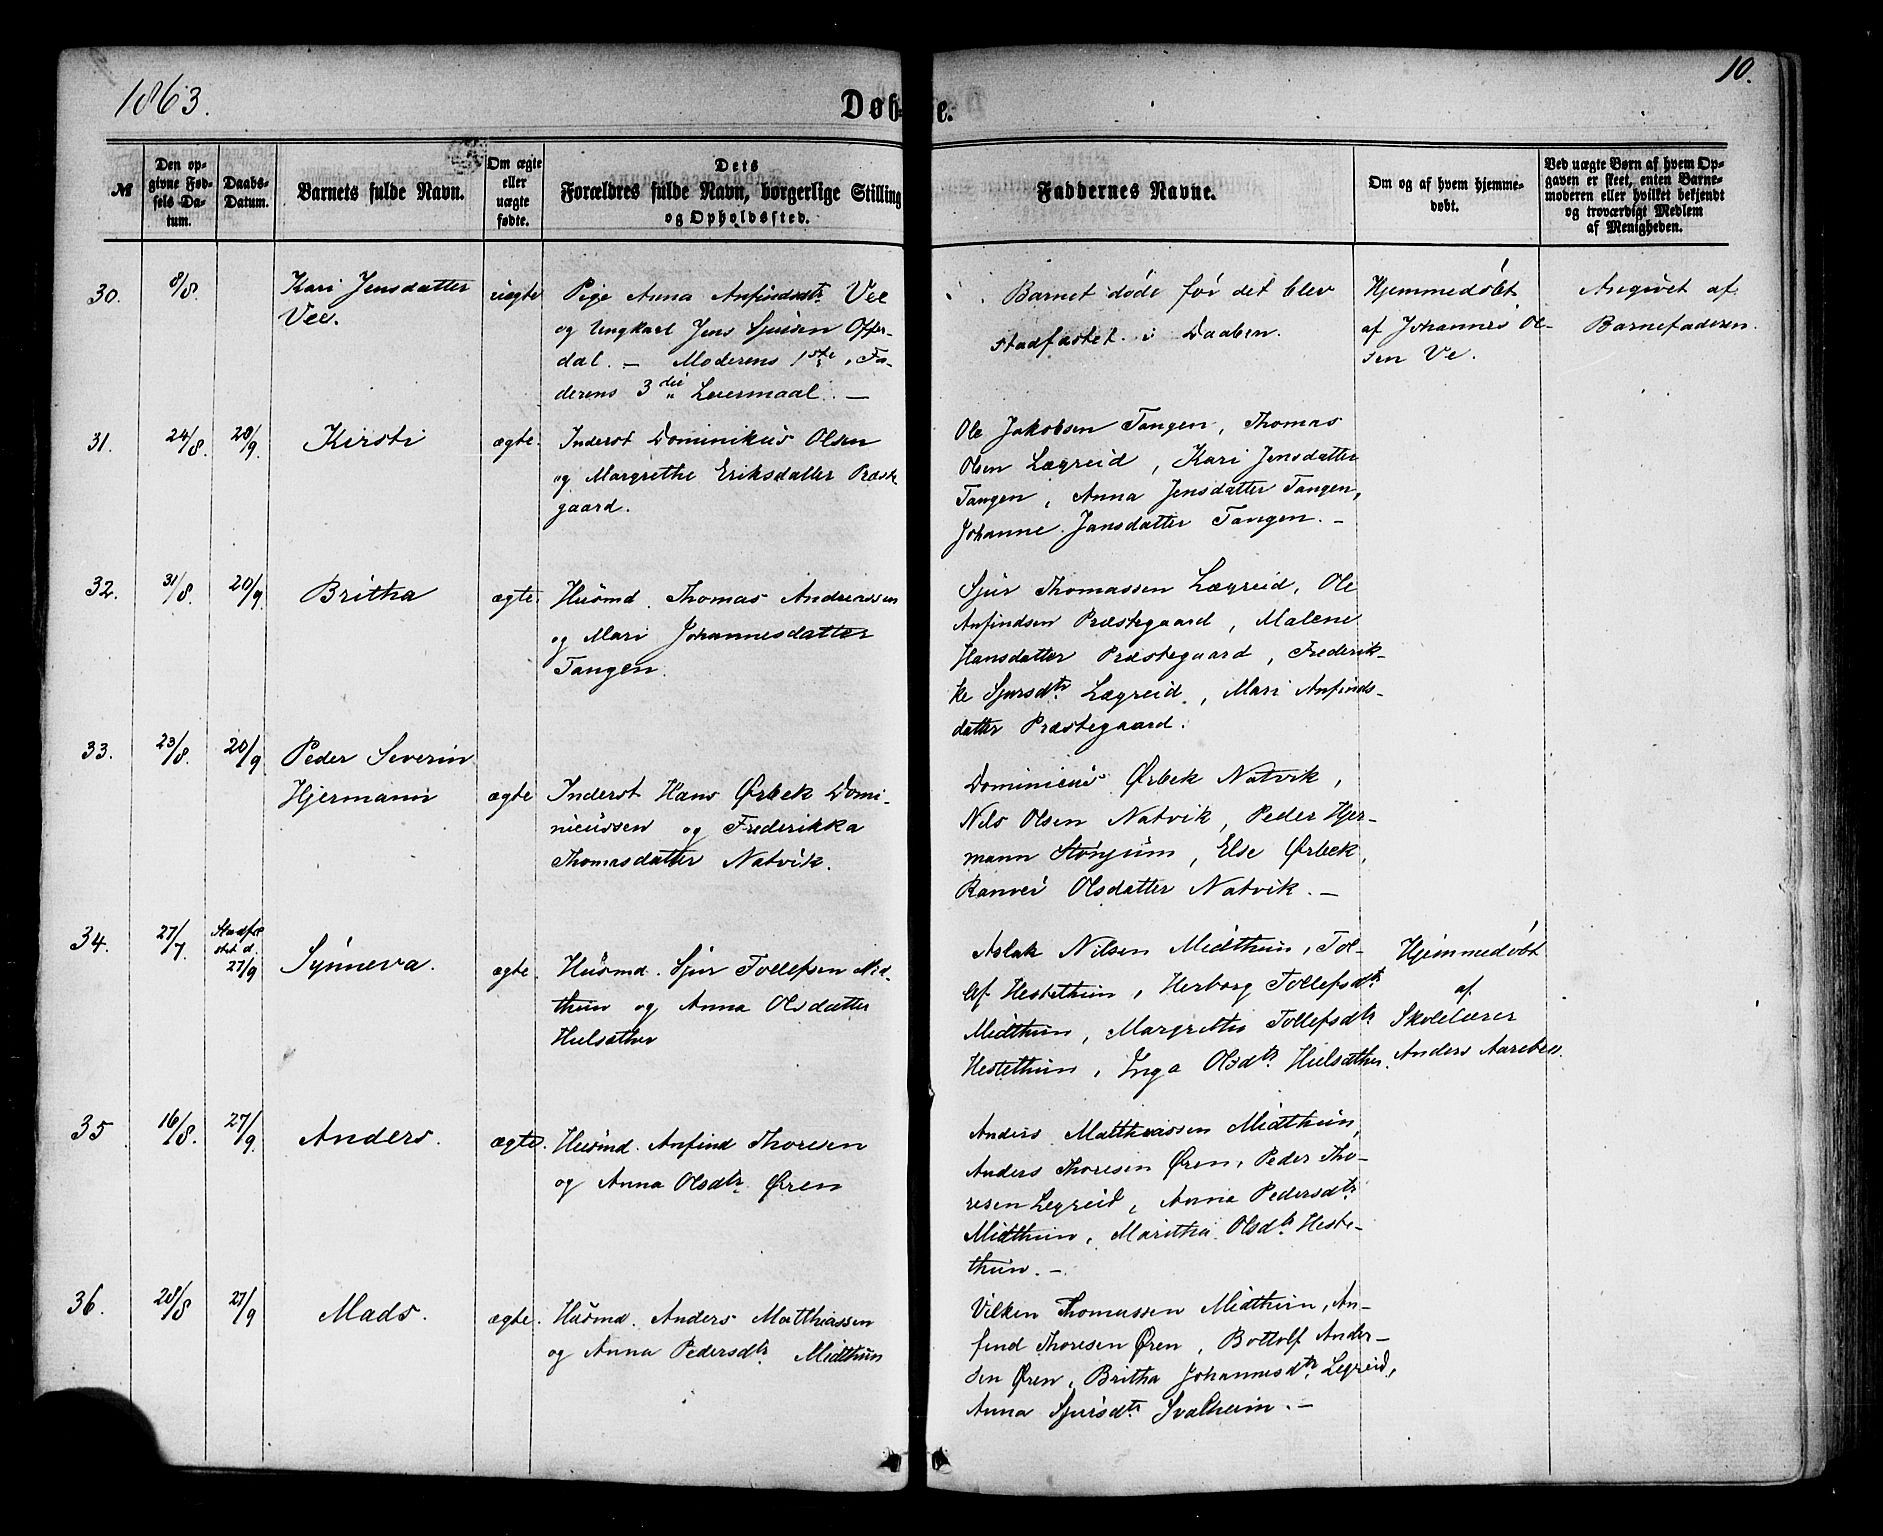 1863.
Døbte.
10.
№
Den opgivne Fødsels Datum.
Daabs-Datum.
Barnets fulde Navn.
Om ægte eller uægte fødte.
Dets Forældres fulde Navn, borgerlige Stilling og Opholdssted.
Faddernes Navne.
Om og af hvem hjemmedøbt.
Ved uægte Børn af hvem Opgaven er skeet, enten Barnemoderen eller hvilket bekjendt og troværdigt Medlem af Menigheden.
30.
8/8.
Kari Jensdatter
Vee.
uægte
Pige Anna Anfindsdtr Vee
og Ungkarl Jens Sjursen Offer-
dal. — Moderens 1ste, Fa-
derens 3die Leiermaal. —
Barnet døde før det blev
stadfæstet i Daaben.
Hjemmedøbt
af Johannes Ol-
sen Ve.
Angivet af
Barnefaderen.
31.
24/8.
20/9.
Kirsti
ægte.
Inderst Dominikus Olsen
og Margrethe Eriksdatter Præste-
gaard.
Ole Jakobsen Tangen, Thomas
Olsen Lægreid, Kari Jensdatter
Tangen, Anna Jensdatter Tangen,
Johanne Jansdatter Tangen. —
32.
31/8.
20/9.
Britha
ægte.
Husmd. Thomas Andreassen
og Mari Johannesdatter
Tangen.
Sjur Thomassen Lægreid, Ole
Anfindsen Præstegaard, Malene
Hansdatter Præstegaard, Frederik-
ke Sjursdtr Lægreid, Mari Anfinds-
datter Præstegaard.
33.
23/8.
20/9
Peder Severin
Hjermann
ægte
Inderst Hans Ørbek Domi-
nicussen og Frederikka
Thomasdatter Natvik.
Dominicus Ørbek Natvik,
Nils Olsen Natvik, Peder Hjer-
mann Stønjum, Else Ørbek,
Ranvei Olsdatter Natvik. —
34.
27/7.
Stadfæ-
stet d.
27/9
Synneva.
ægte.
Husmd. Sjur Tollefsen Mid-
thun og Anna Olsdatter
Hielsæther
Aslak Nilsen Midthun, Tol-
lef Hestethun, Herborg Tollefsdtr
Midthun, Margrethe Tollefsdtr
Hestethun, Inga Olsdtr Hielsæther.
Hjemmedøbt
af
Skolelærer
Anders Aarebro.
35
16/8.
27/9.
Anders.
ægte.
Husmd. Anfind Thoresen
og Anna Olsdtr. Øren
Anders Matthiassen Midthun,
Anders Thoresen Øren, Peder Tho-
resen Legreid, Anna Pedersdtr
Midthun, Maritha Olsdtr Heste-
thun. —
36.
28/8
27/9
Mads.
ægte.
Husmd. Anders Matthiassen
og Anna Pedersdtr. Midthun
Vilken Thomassen Midthun, An-
find Thoresen Øren, Bottolf Ander-
sen Øren, Britha Johannesdtr. Legreid,
Anna Sjursdtr. Svalheim. —